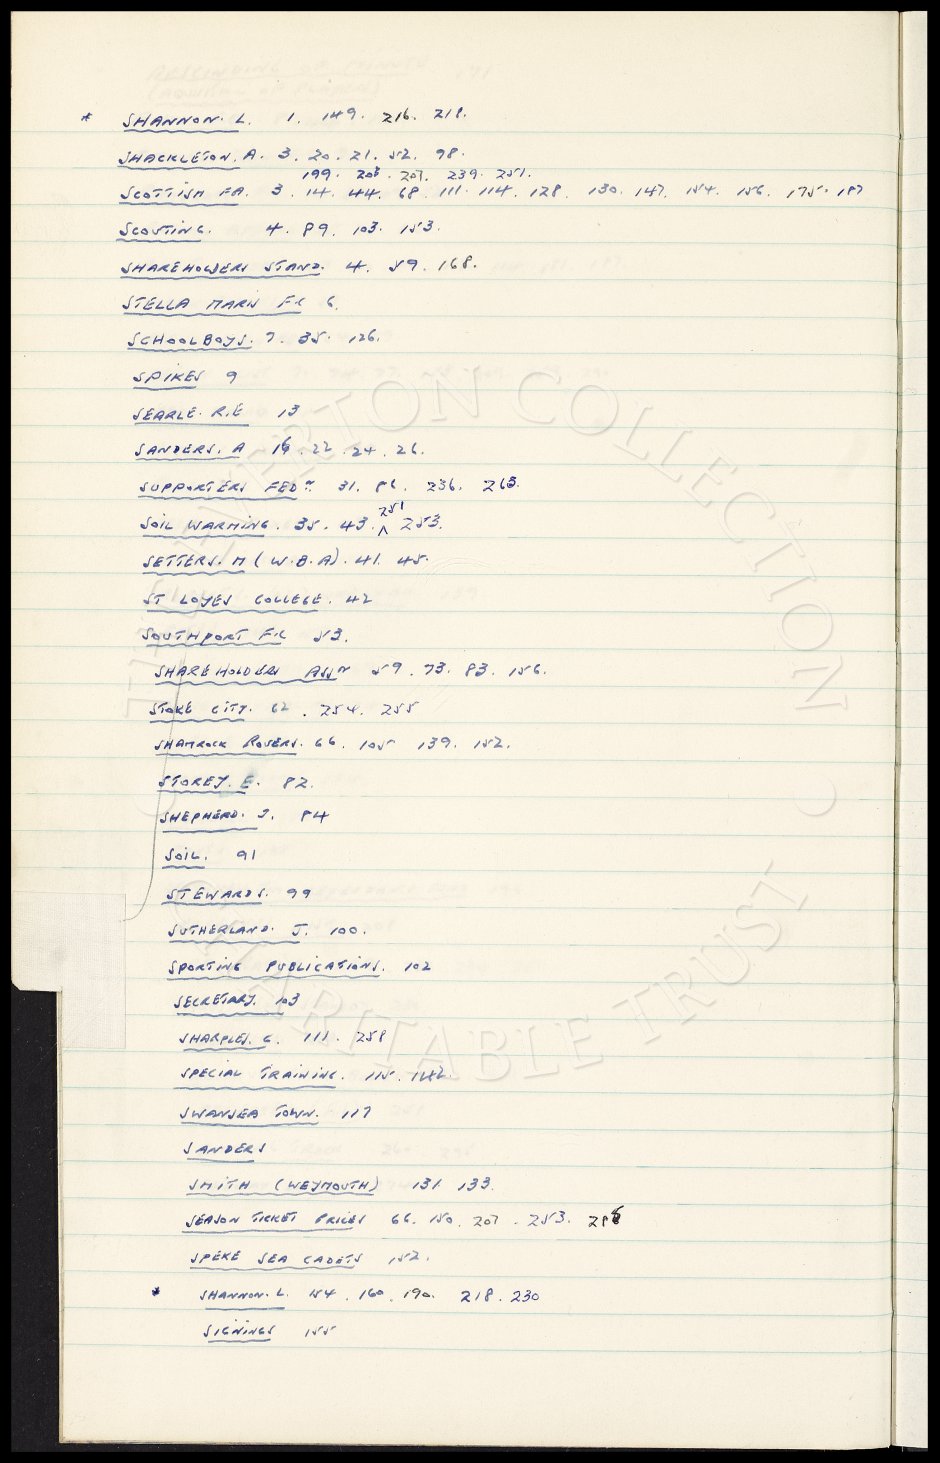 * SHANNON. L. 1. 149. 216. 218.
SHACKLETON. A. 3. 20. 21. 52. 98.
199. 203. 207. 239. 251.
SCOTTISH FA. 3. 14. 44. 68. 111. 114. 128. 130. 147. 154. 156. 175. 187
SCOUTING. 4. 89. 103. 153.
SHAREHOLDERS STAND. 4. 59. 168.
STELLA MARIS FC 6.
SCHOOLBOYS. 7. 35. 126.
SPIKES 9
SEARLE. R.E 13
SANDERS. A 16. 22. 24. 26.
SUPPORTERS FEDN. 31. 86. 236. 263.
251
SOIL WARMING. 35. 43. ^ 253.
SETTERS. M (W.B.A). 41. 45.
ST LOYES COLLEGE. 42
SOUTHPORT FC 53.
SHAREHOLDERS ASSN 59. 73. 83. 156.
STOKE CITY. 62. 254. 255
SHAMROCK ROVERS. 66. 105 139. 152.
STOREY. E. 82.
SHEPHERD. J. 84
SOIL. 91
STEWARDS. 99
SUTHERLAND. J. 100.
SPORTING PUBLICATIONS. 102
SECRETARY. 103
SHARPLES. G. 111. 258
SPECIAL TRAINING. 115. 142.
SWANSEA TOWN. 117
SANDERS
SMITH (WEYMOUTH) 131 133.
SEASON TICKET PRICES 66. 150. 207. 253.
SPEKE SEA CADETS 152.
* SHANNON. L. 154. 160. 190. 218. 230
SIGNINGS 155
THE EVERTON COLLECTION CHARITABLE TRUST